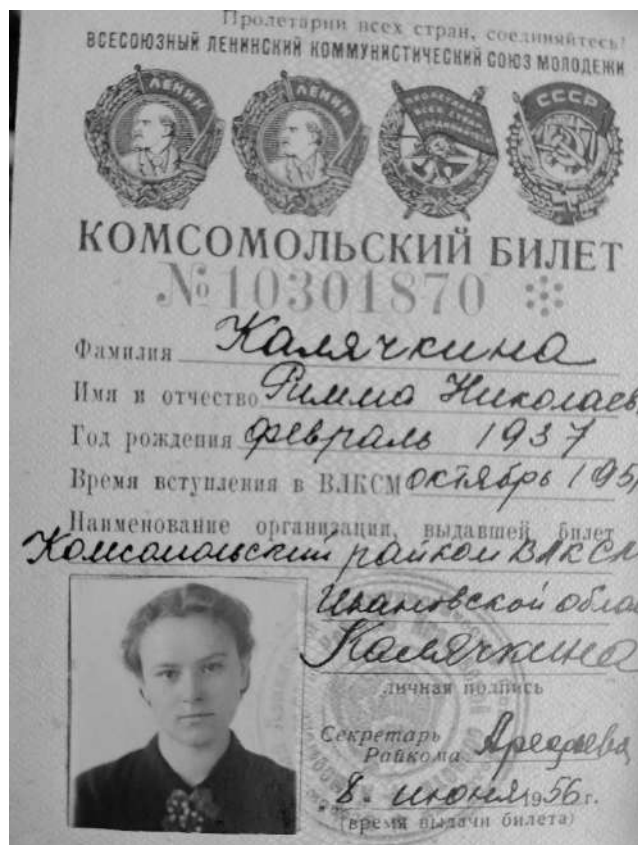 Пролетарии всех стран, соединяйтесь!
ВСЕСОЮЗНЫЙ ЛЕНИНСКИЙ КОММУНИСТИЧЕСКИЙ СОЮЗ МОЛОДЕЖИ
ЛЕНИН ЛЕНИН СССР
КОМСОМОЛЬСКИЙ БИЛЕТ
№ 10301870
Фамилия Калячкина
Имя и отчество Римма Николаев
Год рождения февраль 1937
Время вступления в ВЛКСМ октябрь 195
Наименование организации, выдавшей билет
Комсомольский райком ВЛКСМ
Ивановской обла
Калячкина
личная подпись
Секретарь
Райкома
8. июня 1956 г.
(время выдачи билета)